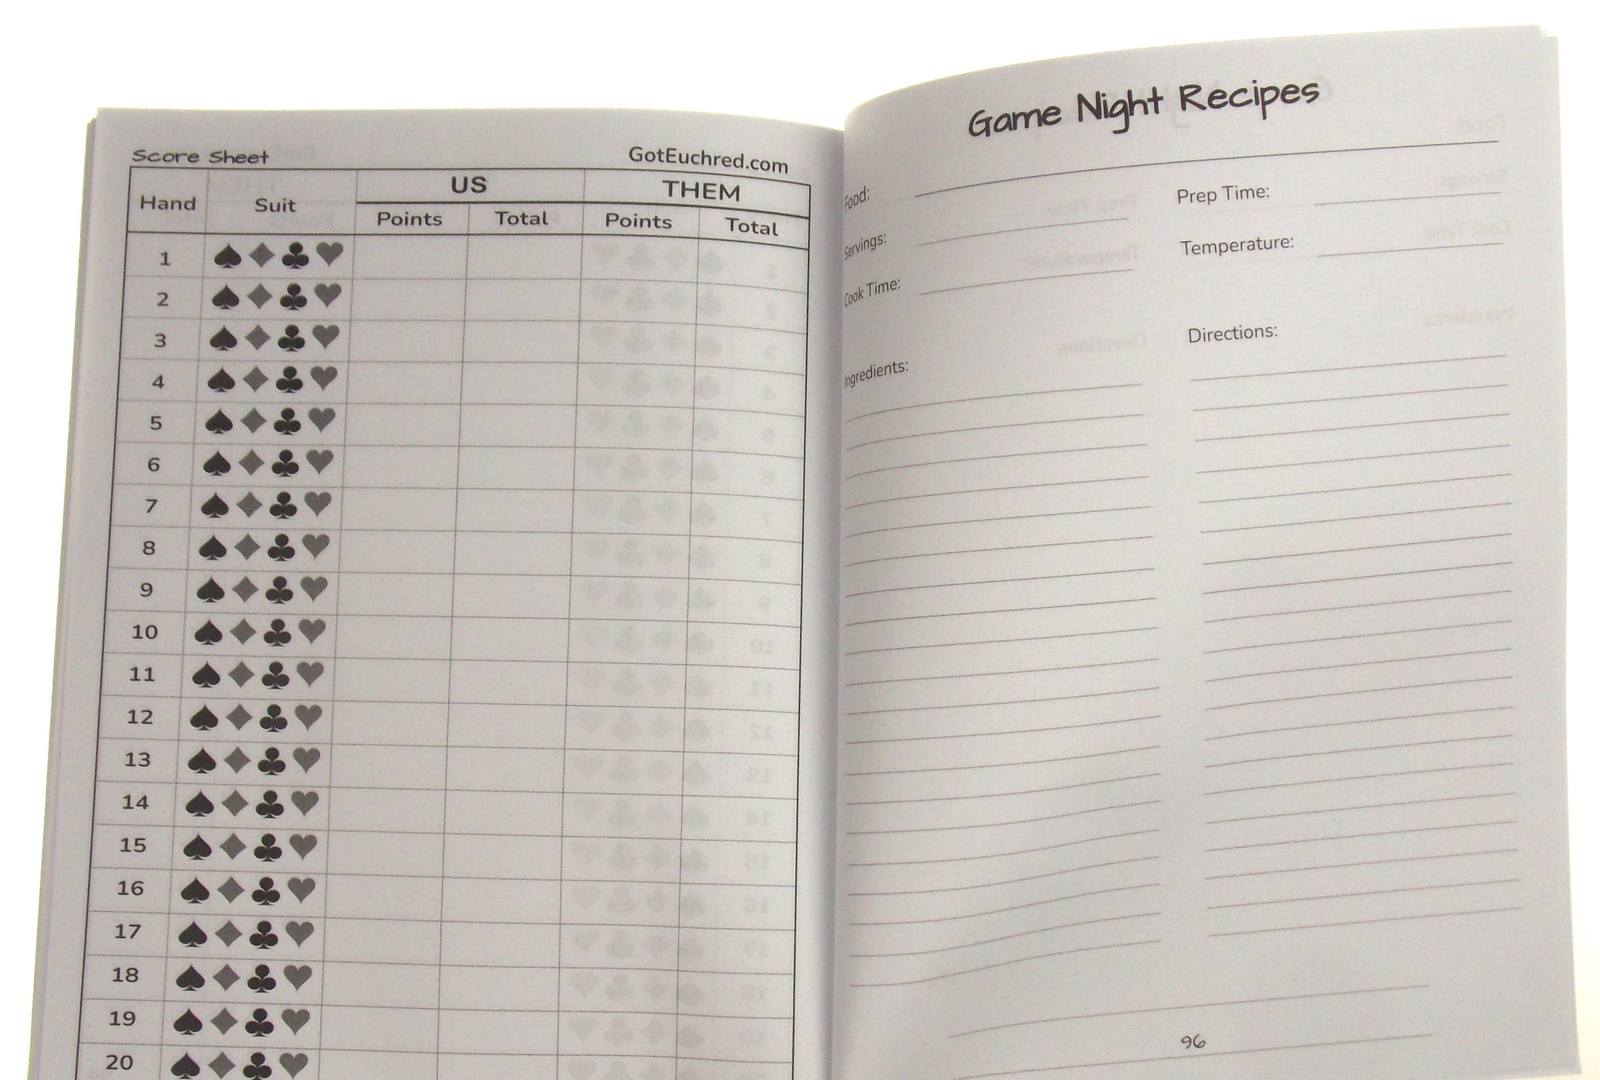 Score Sheet GotEuchred.com
Hand Suit US THEM
Points Total Points Total
1
2
3
4
5
6
7
8
9
10
11
12
13
14
15
16
17
18
19
20
Game Night Recipes
Food:
Prep Time:
Servings:
Temperature:
Cook Time:
Ingredients:
Directions:
96